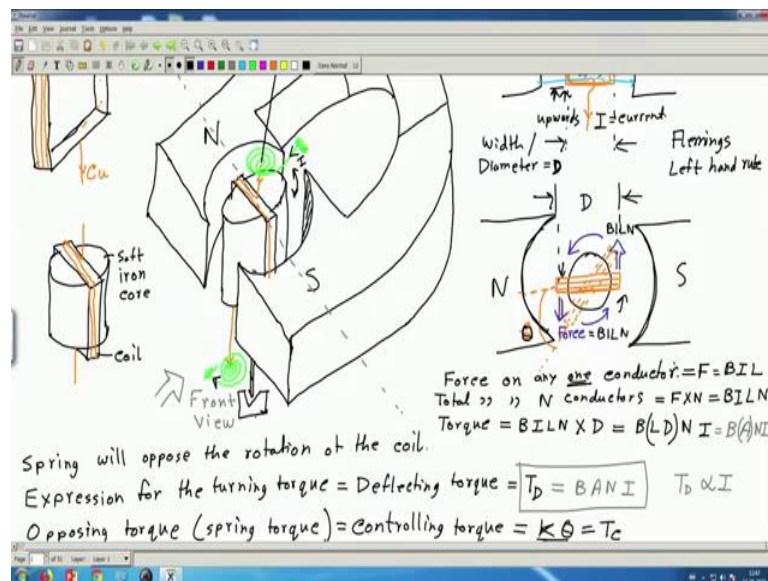 File Edit View Journal Tools Options Help
Sans Normal 12
Cu
Soft
iron
core
coil
N
I
S
Front
View
upwards I = current
Width/
Diameter = D
Flemings
Left hand rule
D
BILN
N
S
θ
Force = BILN
Force on any one conductor = F = BIL
Total " " N conductors = F X N = BILN
Torque = BILN X D = B(LD)N I = B(A)NI
Spring will oppose the rotation of the coil.
Expression for the turning torque = Deflecting torque = T_D = BANI T_D ∝ I
Opposing torque (spring torque) = Controlling torque = Kθ = Tc
Page 1 of 51 Layer: Layer 1